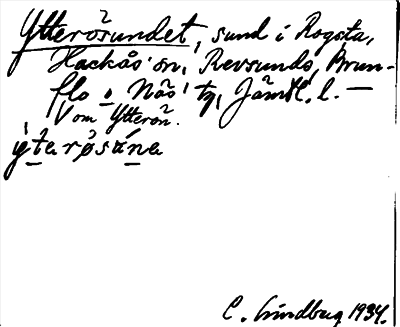 Ytterösundet, sund i Rogsta,
Hackås' sn, Revsunds, Brun-
flo o Näs' tg, Jämtl. l. —
V om Ytterön.
ýtarøsánа
C. Lindberg 1934.